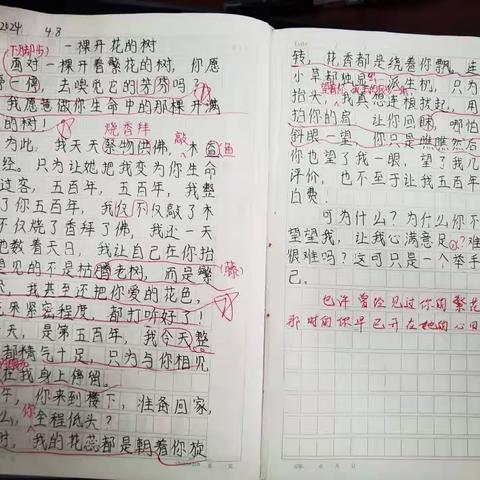 2024 4.8
一棵开花的树
面对一棵开着繁花的树，你愿
停一停，去嗅见它的芳芬吗？
我愿意做你生命中的那棵开满
的树！
烧香拜
为此，我天天祭物供佛，敲木鱼
经。只为让她把我变为你生命
过客，五百年，五百年，我整
了你五百年，我仅不仅敲了木
不仅烧了香拜了佛，我还一天
地数着天日，我让自己在你抬
望见的不是枯老树，而是繁
（藤）
，我甚至还把你爱的花色，
花朵紧密程度，都打听好了！
天，是第五百年，我今天整
都精气十足，只为与你相见
在我身上停留。
午，你来到楼下，准备回家，
你全程低头？
时，我的花蕊都是朝着你旋
转，花香都是绕着你飘，连
小草都独显一派生机，只为
抬头，我真想连根拔起，用
拍你的肩，让你回眸，哪怕
斜眼一望，你只是瞧瞧然后
你也望了我一眼，望了我几
评价，也不至于让我五百年
白费！
可为什么？为什么你不
望望我，让我心满意足 难
很难吗？这可只是一个举手
己。
也许曾经见过你的繁花
那时的你早已开在她的心田